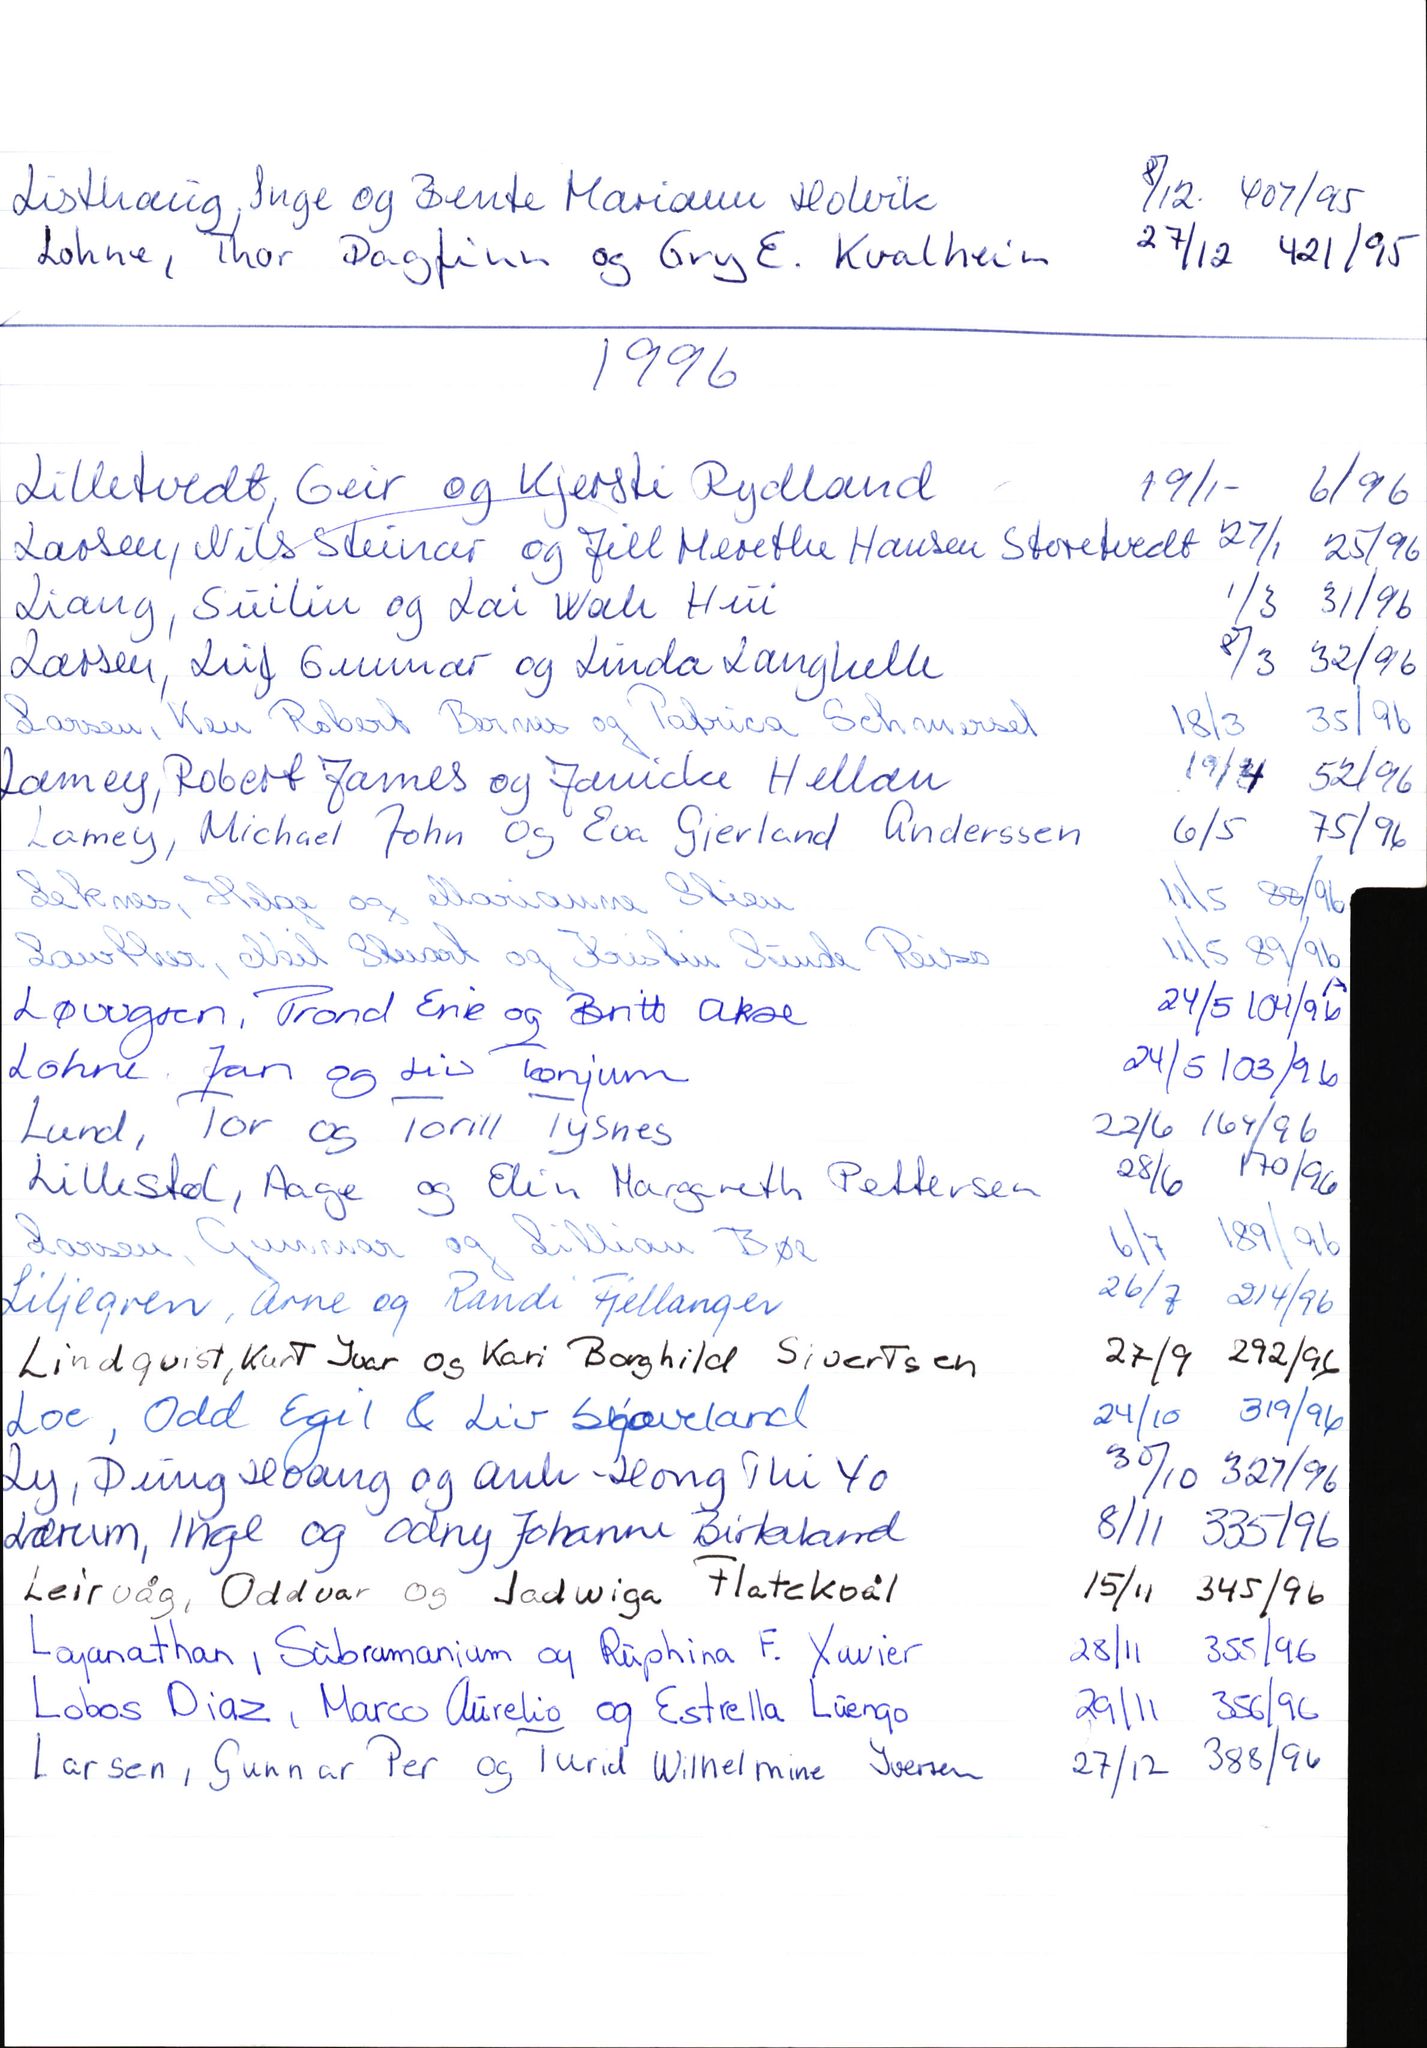 Listhaug, Inge og Bente Mariann Holvik 8/12. 407/95
Lohne, Thor Dagfinn og Gry E. Kvalheim 27/12 421/95
1996
Lilletvedt, Geir og Kjersti Rydland 19/1- 6/96
Larsen, Nils Steinar og Jill Merethe Hansen Storetvedt 27/1 25/96
Liang, Suilin og Lai Wah Hui 1/3 31/96
Larsen, Leif Gunnar og Linda Langhelle 8/3 32/96
Larsen, Ken Robert Bernes og Patrica Schmersel 18/3 35/96
Lamey, Robert James og Janicke Hellan 19/4 52/96
Lamey, Michael John og Eva Gjerland Anderssen 6/5 75/96
Leknes, Helge og Marianne Stien 11/5 88/96
Lawther, Neil Stuart og Kristin Sunde 11/5 89/96
Løvvgren, Trond Erik og Britt Akse 24/5 104/96
Lohne Jan og Liv Tønjum 24/5 103/96
Lund, Tor og Torill Tysnes 22/6 164/96
Lillestøl, Aage og Elin Margareth Pettersen 28/6 170/96
Larsen, Gunnar og Lillian Bøe 6/7 189/96
Liljegren, Arne og Randi Fjellanger 26/7 214/96
Lindqvist, Kurt Ivar og Kari Borghild Sivertsen 27/9 292/96
Loe, Odd Egil & Liv 24/10 319/96
Ly, Dung Hoang og Anh-Hong Thi Yo 30/10 327/96
Lærum, Inge og Odny Johanne Birkeland 8/11 335/96
Leirvåg, Oddvar og Jadwiga Flatekvål 15/11 345/96
Loganathan, Subramanium og Ruphina F. Xavier 28/11 355/96
Lobos Diaz, Marco Aurelio og Estrella Luengo 29/11 356/96
Larsen, Gunnar Per og Turid Wilhelmine Iversen 27/12 388/96